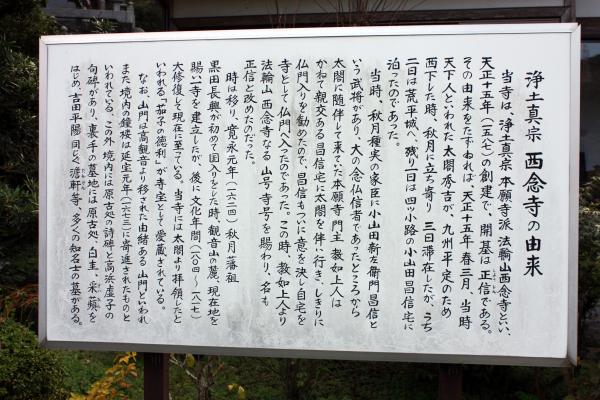 浄土真宗 西念寺の由来
当寺は、浄土真宗 本願寺派 法輪山西念寺といい、
天正十五年(一五八七)の創建で、開基は正信である。
その由来をたずぬれば、天正十五年 春三月、当時
天下人といわれた太閤秀吉が、九州平定のため
西下した時、秋月に立ち寄り 三日滞在したが、うち
二日は荒平城へ、残り一日は四ツ小路の小山田昌信宅に
泊ったのであった。
当時、秋月種実の家臣に小山田新左衛門昌信と
いう武将があり、大の念仏信者であったところから
太閤に随伴して来ていた本願寺門主 教如上人は
かねて親交ある昌信宅に太閤を伴い行き、しきりに
仏門入りを勧めたので、昌信もついに意を決し自宅を
寺として仏門に入ったのであった。この時、教如上人より
法輪山 西念寺なる 山号 寺号を賜わり、名も
正信と改めたのだった。
時は移り、寛永元年(一六二四) 秋月藩祖
黒田長興が初めて国入りをした時、観音山の麓、現在地を
賜い一寺を建立したが、後に文化年間(一八〇四〜一八一七)
大修復して現在に至っている。当寺には太閤より拝領したと
いわれる「茄子の徳利」が寺宝として愛蔵されている。
なお、山門は高観音より移された由緒ある 山門といわれ
また 境内の鐘楼は延宝元年(一六七三)に寄進されたものと
いわれている。この外 境内には原古処の詩碑と高浜虚子の
句碑があり、裏手の墓地には 原古処、白圭、采蘋を
はじめ、吉田平陽 同じく 澹軒等、多くの知名士の墓がある。